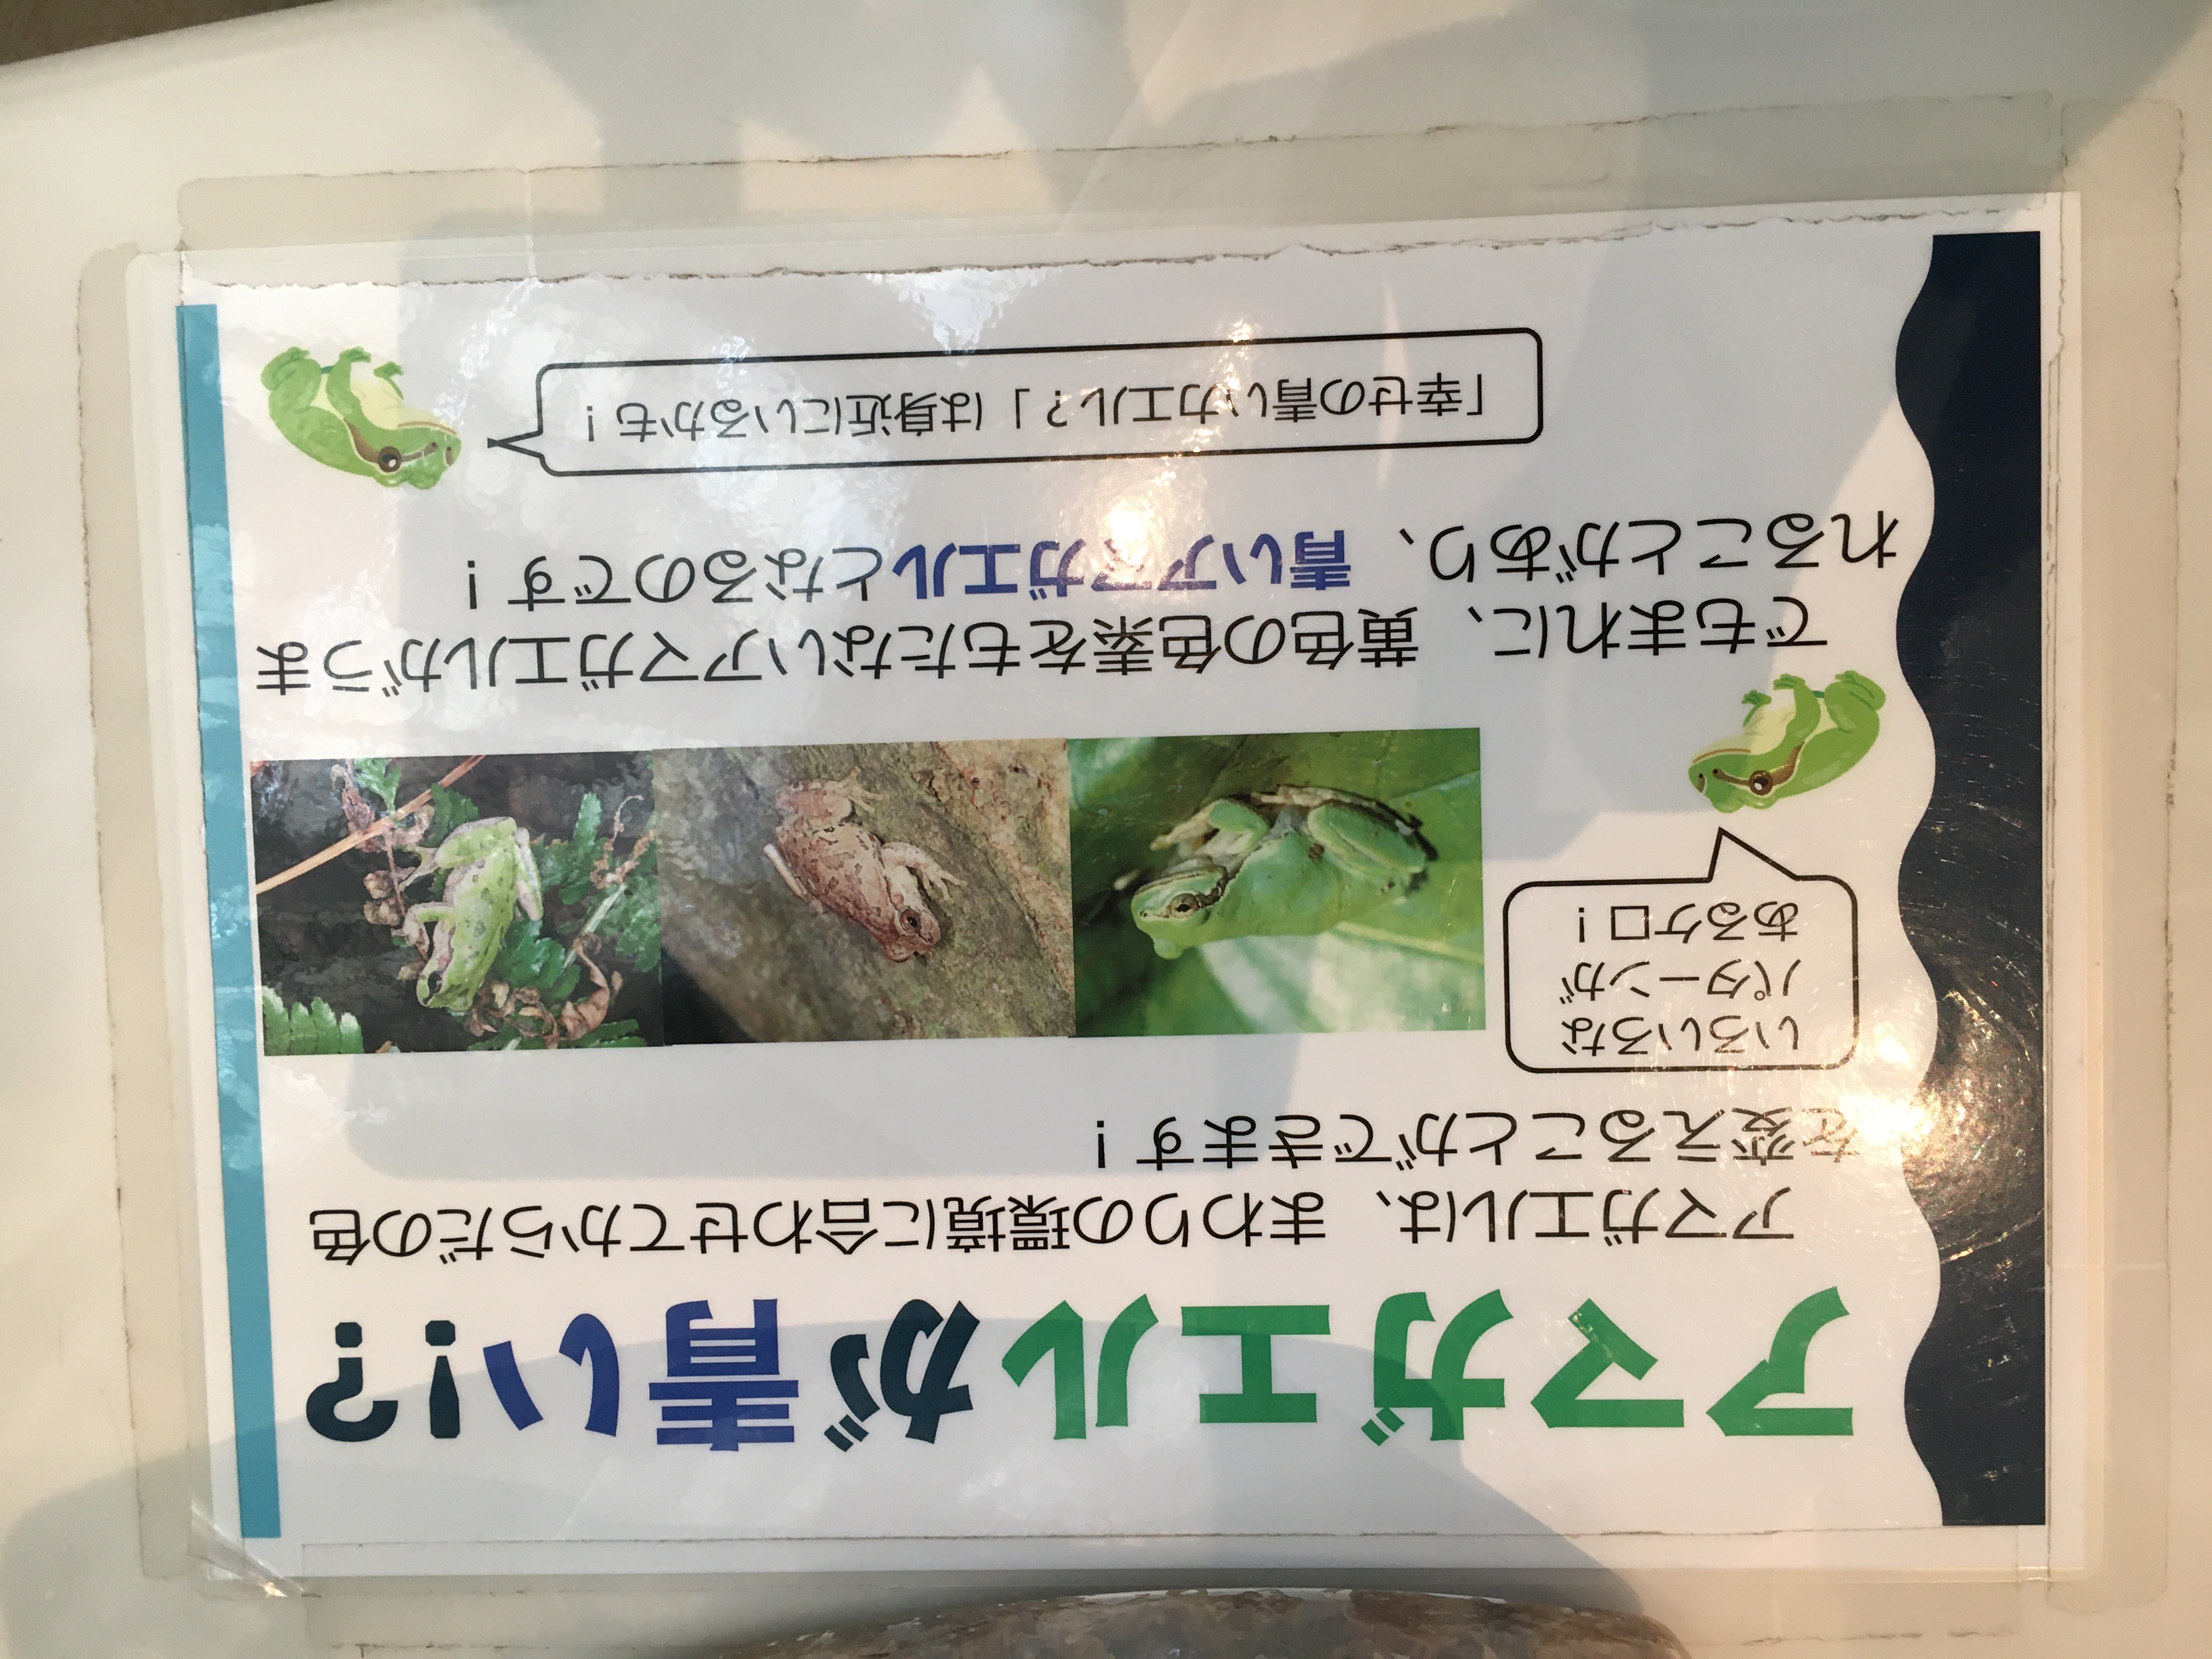 アマガエルが青い!?
アマガエルは、まわりの環境に合わせてからだの色
を変えることができます！
いろいろな
パターンが
あるケロ！
でもまれに、黄色の色素をもたないアマガエルがうま
れることがあり、青いアマガエルとなるのです！
「幸せの青いカエル？」は身近にいるかも！